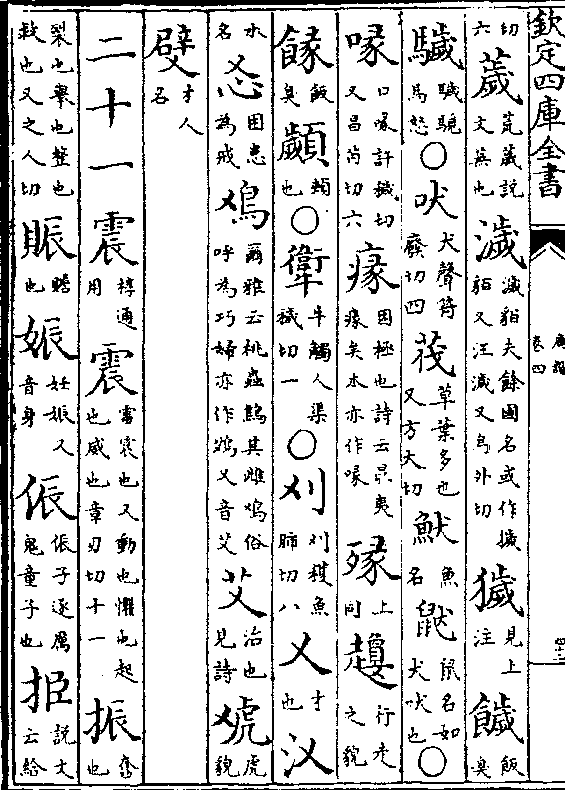 欽定四庫全書 廣韻 卷四
切六 薉 荒薉説文蕪也 濊 濊貊夫餘國名或作獩貊又汪濊又烏外切 獩 見上注 饖 飯臭
馬怒 ○ 吠 犬聲符廢切四 茷 草葉多也又方大切 魚名 鼠名如犬吠也 ○
喙 口喙許穢切又昌芮切六 困極也詩云昆夷矣本亦作喙 上同 行走之貌
餯 飯臭 顪 頰也 ○ 牛觸人渠穢切一 ○ 刈 刈穫魚肺切八 乂 才也
水名 困患為戒 爾雅云桃蟲鷦其雌俗呼為巧婦亦作又音艾 艾 治也見詩 虎貌
才人名
二十一震 稕通用 震 雷震也又動也懼也起也威也章刃切十一 振 奮也
裂也舉也整也救也又之人切 賑 贍也 娠 妊娠又音身 侲 侲子逐厲鬼童子也 挋 説文云給